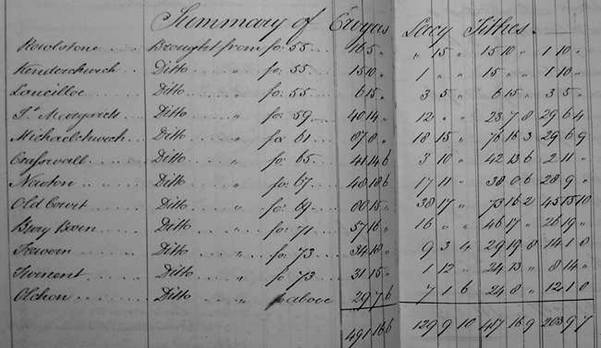 Summary of Ewyas Lacy Tithes.
Rowlstone Brought from fo: 55 16 5 " " 15 " 15 10 " 1 10 "
Kenderchurch Ditto " fo: 55 15 10 " 1 " " 15 " " 1 10 "
Lancillo Ditto " fo: 55 6 15 " 3 5 " 6 15 " 3 5 "
St Margarets Ditto " fo: 59 40 14 " 12 " " 23 7 8 29 6 4
Michaelchurch Ditto " fo: 61 18 15 " 76 16 3 29 6 9
Craswall Ditto " fo: 65 41 14 6 3 10 " 42 13 6 2 11 "
Newton Ditto " fo: 67 48 18 6 17 11 " 38 0 6 28 9 "
Old Court Ditto " fo: 69 38 17 " 73 16 2 45 15 10
Bury Ditto " fo: 71 57 16 " 16 " " 46 17 " 26 19 "
Ditto " fo: 73 34 18 " 9 3 4 29 19 8 14 1 8
Ditto " fo: 73 31 15 " 1 12 " 24 13 " 8 14 "
Olchon Ditto " above 29 7 6 7 1 6 24 8 " 12 1 0
491 16 6 129 9 10 417 16 9 203 9 7